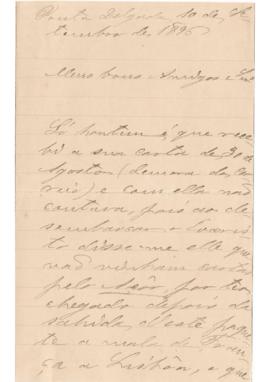 Ponta Delgada 10 de Se-
tembro de 1895
Meu bom Amigo e Snr
Só hontem é que rece-
bi a sua carta de 30 de
Agosto (demora do cor-
reio) e com ella não
contava, pois ao de-
sembarcar o
to disse-me elle que
não vinham cartas
pelo Açôr, por ter
chegado depois da
sahida d'este paque-
te a mala de Fran-
ça a Lisbôa, o que